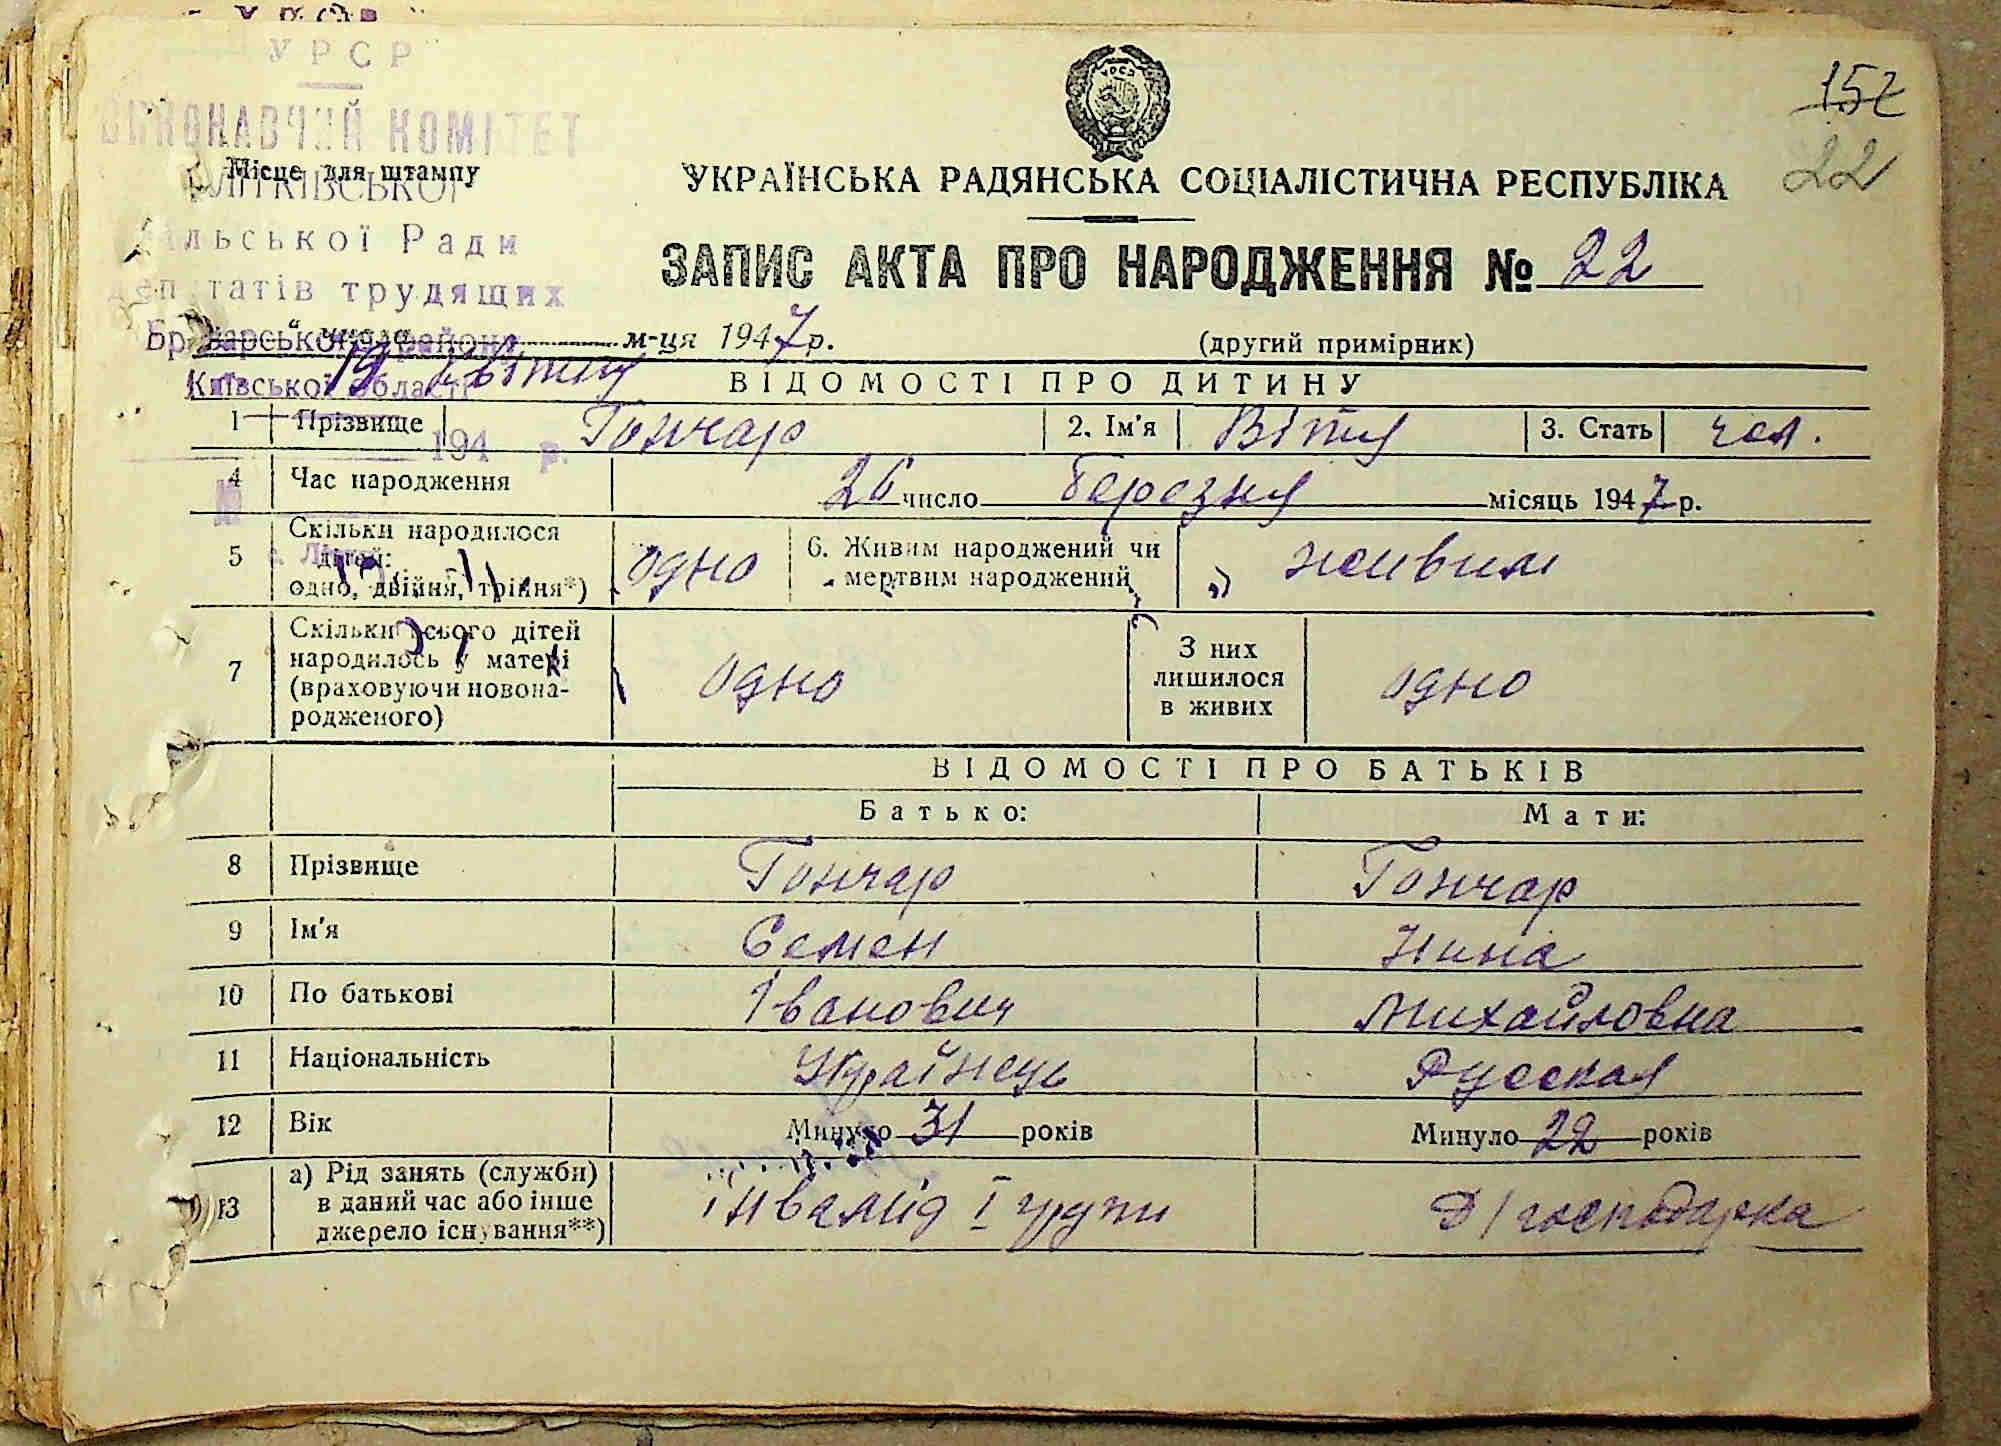 УРСР
ВИКОНАВЧИЙ КОМІТЕТ
ЛІТКІВСЬКОЇ
сільської Ради
депутатів трудящих
Броварського району
Київської області
194 р.
Місце для штампу
152
22
УКРАЇНСЬКА РАДЯНСЬКА СОЦІАЛІСТИЧНА РЕСПУБЛІКА
ЗАПИС АКТА ПРО НАРОДЖЕННЯ № 22
" числа м-ця 1947 р. (другий примірник)
19 квітня
ВІДОМОСТІ ПРО ДИТИНУ
1 Прізвище Гончар 2. Ім'я Вітя 3. Стать чол.
4 Час народження 26 число березня місяць 1947 р.
5 Скільки народилося дітей: одно, двійня, трійня*) одно 6. Живим народжений чи мертвим народжений живим
7 Скільки всього дітей народилось у матері (враховуючи новонародженого) одно З них лишилося в живих одно
ВІДОМОСТІ ПРО БАТЬКІВ
Батько: Мати:
8 Прізвище Гончар Гончар
9 Ім'я Семен Нина
10 По батькові Іванович Михайловна
11 Національність Українець Русская
12 Вік Минуло 31 років Минуло 22 років
13 а) Рід занять (служби) в даний час або інше джерело існування**) інвалід І групи Д/господарка